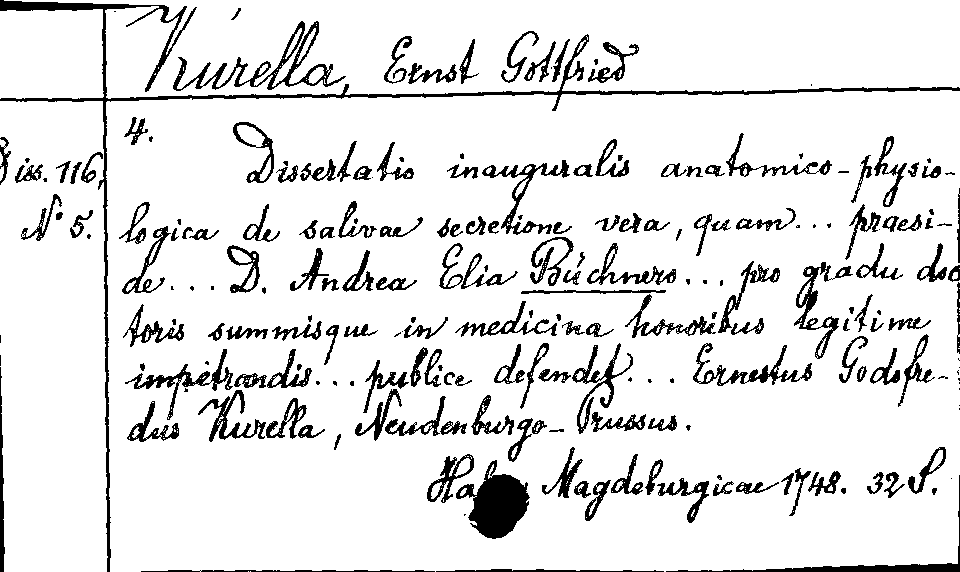 Kurella, Ernst Gottfried
Diss. 116,
No 5.
4.
Dissertatio inauguralis anatomico-physio-
logica de salivae secretione vera, quam... praesi-
de... D. Andrea Elia Büchnero... pro gradu doc
toris summisque in medicina honoribus legitime
impetrandis... publice defendet... Ernestus Godofre-
dus Kurella, Neudenburgo-Prussus.
Magdeburgicae 1748. 32 S.